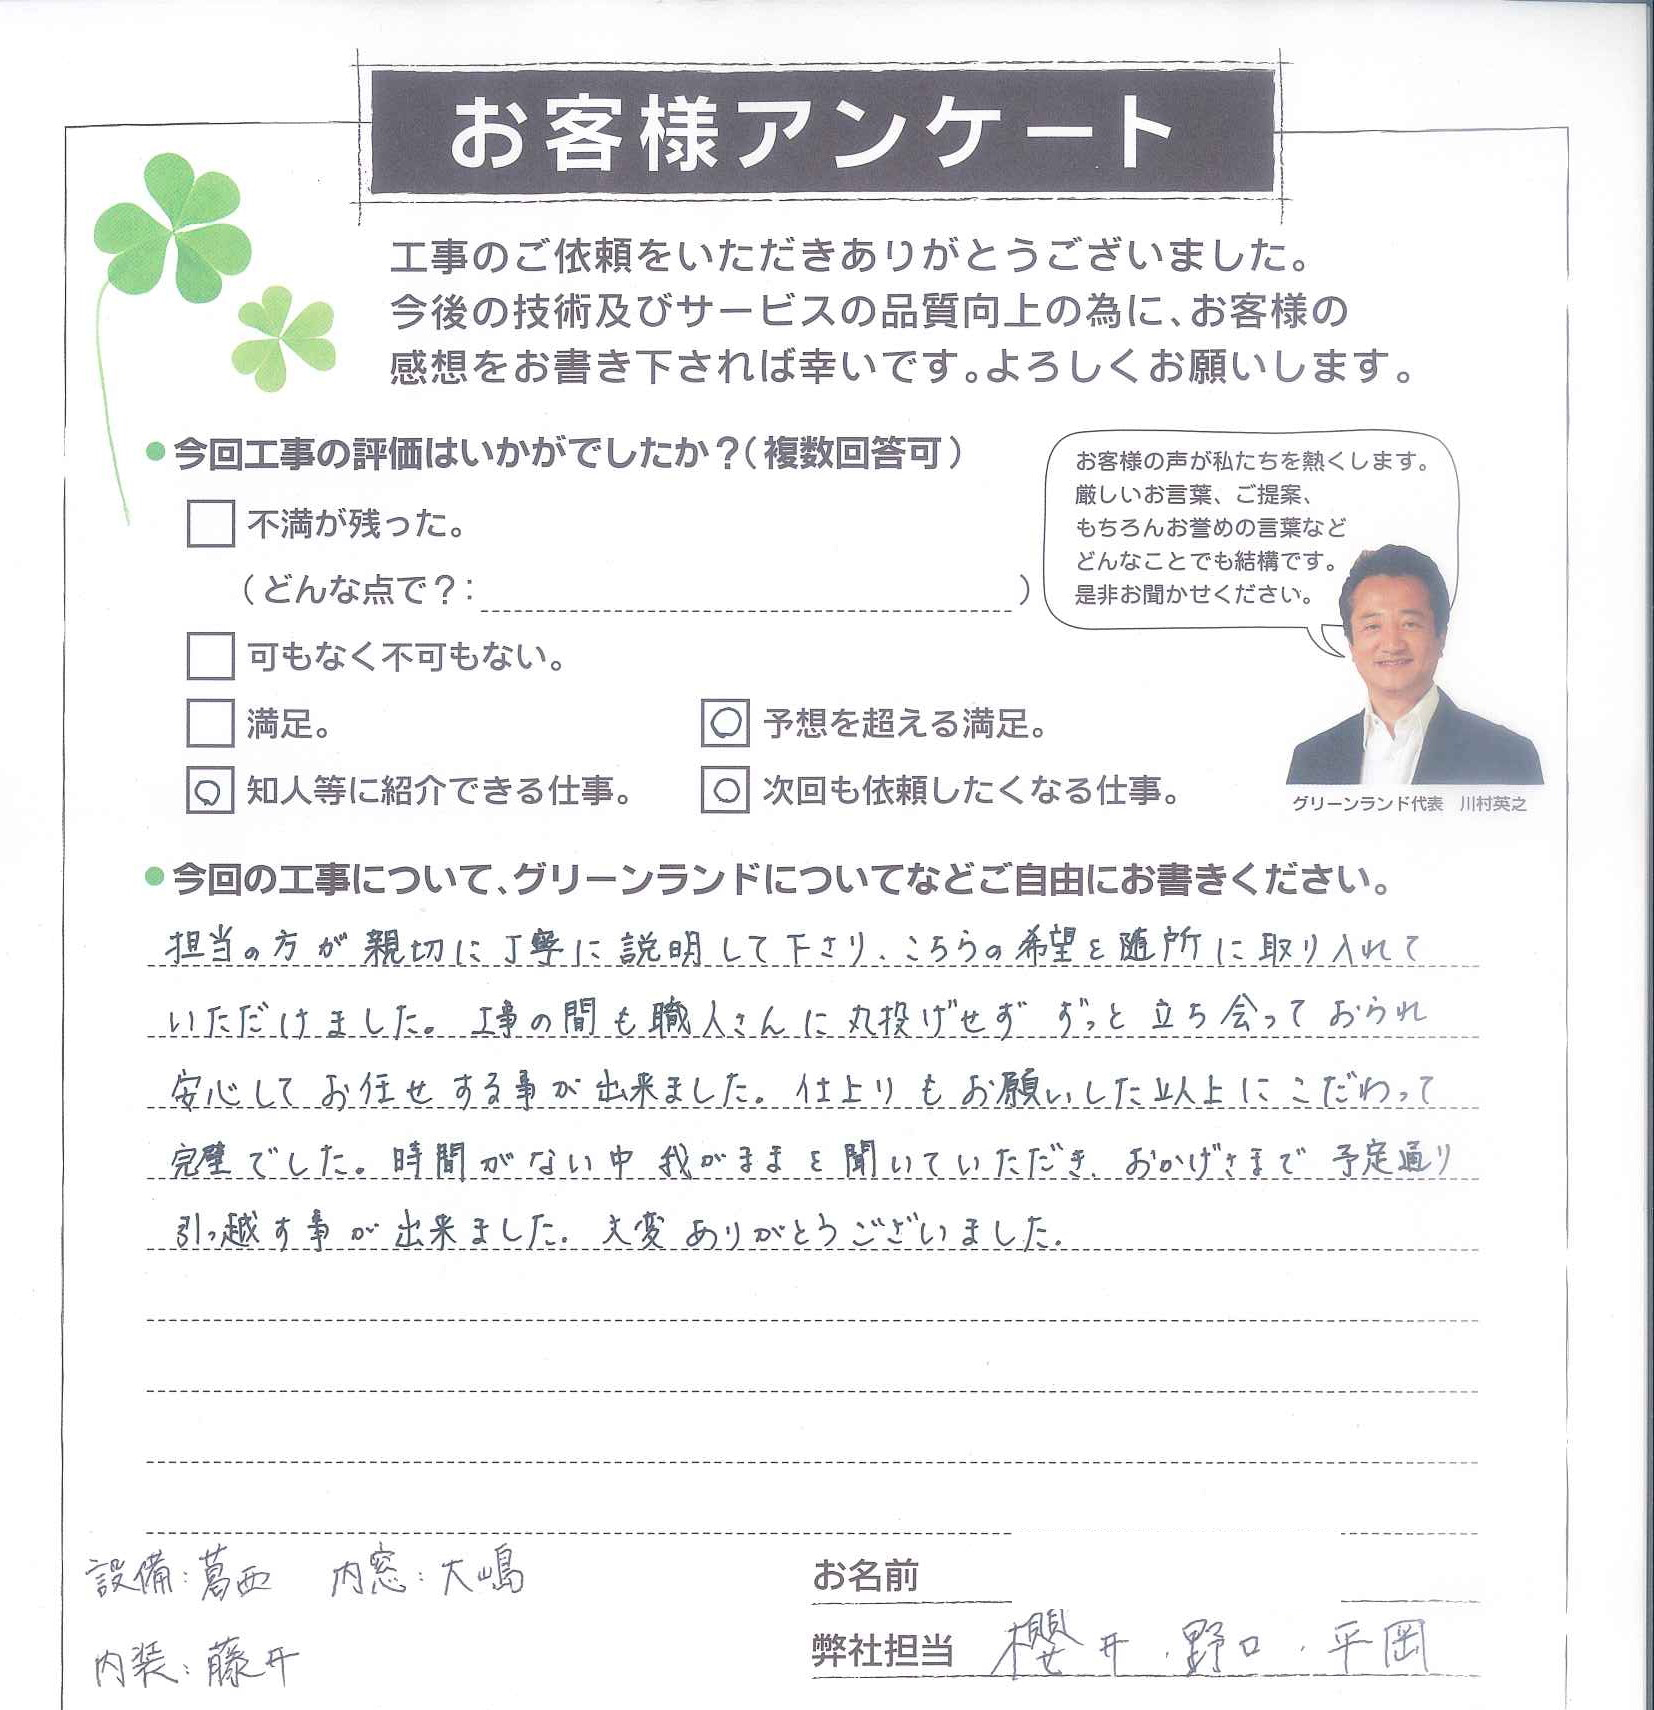 お客様アンケート
工事のご依頼をいただきありがとうございました。
今後の技術及びサービスの品質向上の為に、お客様の
感想をお書き下されば幸いです。よろしくお願いします。
●今回工事の評価はいかがでしたか？（複数回答可）
不満が残った。
（どんな点で？：　）
可もなく不可もない。
満足。
○ 予想を超える満足。
○ 知人等に紹介できる仕事。
○ 次回も依頼したくなる仕事。
お客様の声が私たちを熱くします。
厳しいお言葉、ご提案、
もちろんお誉めの言葉など
どんなことでも結構です。
是非お聞かせください。
グリーンランド代表　川村英之
●今回の工事について、グリーンランドについてなどご自由にお書きください。
担当の方が親切に丁寧に説明して下さり、こちらの希望を随所に取り入れて
いただけました。工事の間も職人さんに丸投げせず ずっと立ち会っておられ
安心してお任せする事が出来ました。仕上りもお願いした以上にこだわって
完璧でした。時間がない中我がままを聞いていただき、おかげさまで予定通り
引っ越す事が出来ました。大変ありがとうございました。
設備：葛西　内窓：大嶋
内装：藤井
お名前
弊社担当　櫻井、野口、平岡